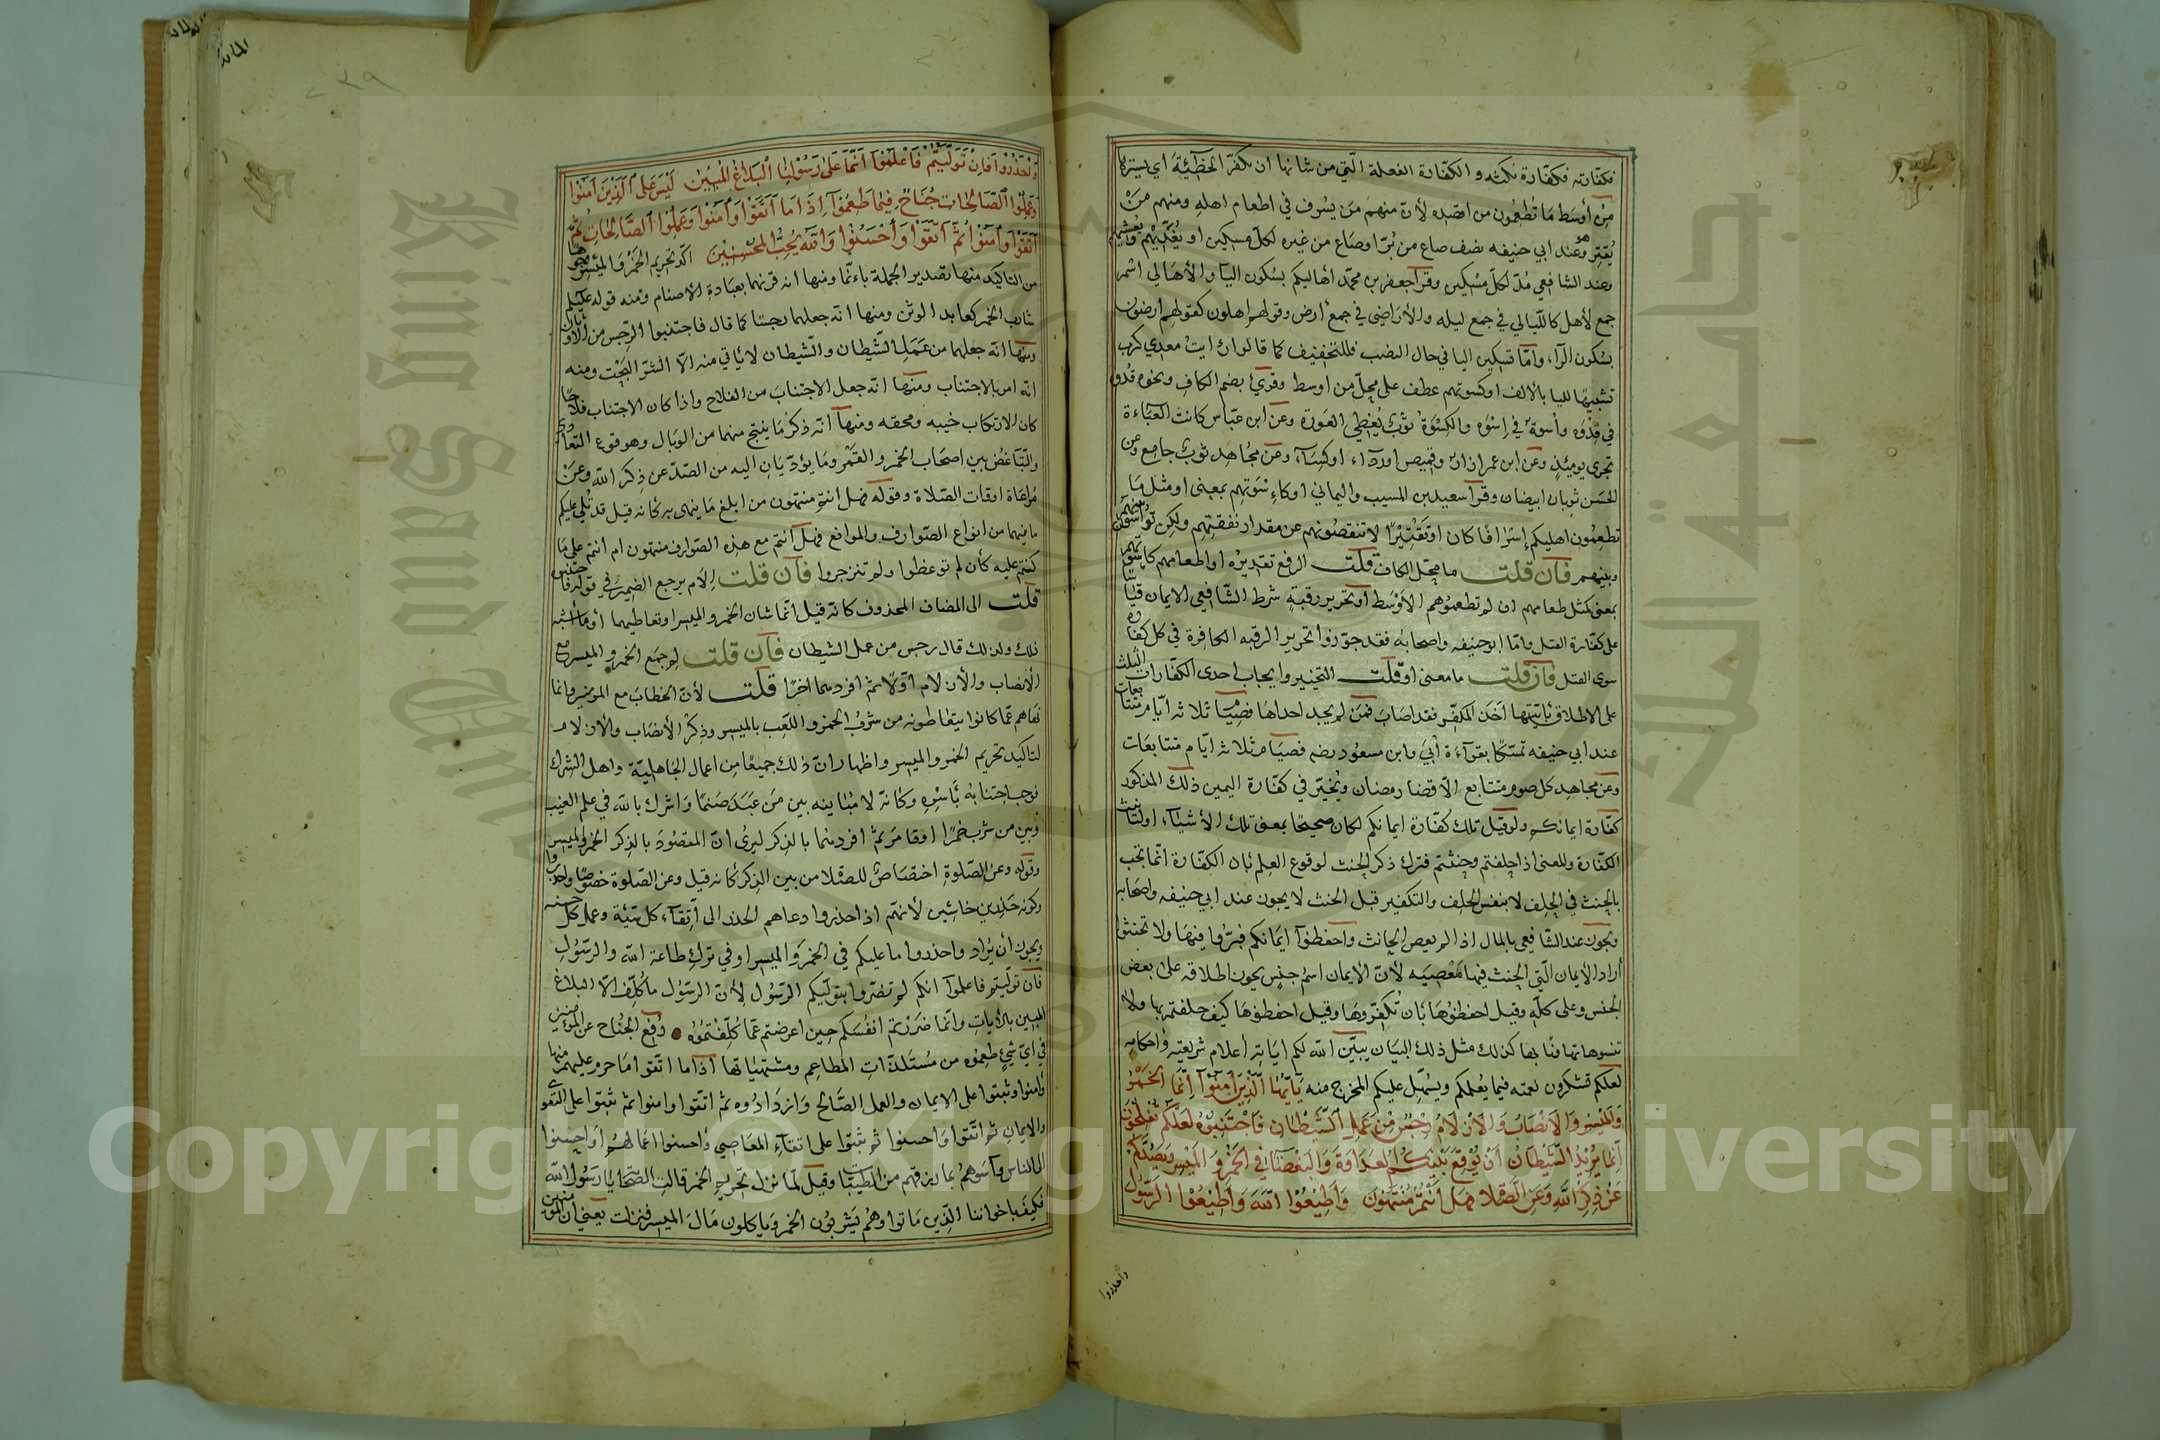 فكفارته فكفارة نكثه والكفارة الفعلة التي من شانها ان تكفر الخطيئة اي تسترها
من أوسط ما تطعمون من اقصده لأن منهم من يسرف في اطعام اهله ومنهم من
يقتر وهو عند ابي حنيفه نصف صاع من بر اوصاع من غيره لكل مسكين او يغديهم ويعشيهم
وعند الشافعي مد لكل مسكين وقرأ جعفر بن محمد أهاليكم بسكون اليا والأهالي اسم
جمع لأهل كالليالي في جمع ليله والأراضي في جمع أرض وقولهم اهلون كقولهم ارضون
بسكون الرآ، وامّا تسكين اليا في حال النصب فللتخفيف كما قالوا رايت معدي كرب
تشبيها لليا بالألف اوكسوتهم عطف على محل من أوسط وقرئ بضم الكاف ونحوه قدوة
في قدوه وأسوة في إسوه والكسوة ثوب يغطي العورة وعن ابن عباس كانت العباءة
تجزي يومئذ وعن ابن عمر ازار وقميص اوردآء اوكسآء وعن مجاهد ثوب جامع وعن
الحسن ثوبان ابيضان وقرأ سعيد بن المسيب واليماني اوكاسوتهم بمعنى او مثل ما
تطعمون اهليكم إسرافا كان اوتقتيرا لا تنقصونهم عن مقدار نفقتهم ولكن تواسون بينهم
وبينهم فان قلت ما محل الكاف قلت الرفع تقديره اواطعامهم كاسوتهم
بمعنى كمثل طعامهم ان لم تطعموهم الأوسط اوتحرير رقبة شرط الشافعي الايمان قياسا
على كفارة القتل وامّا ابو حنيفه واصحابه فقد جوزوا تحرير الرقبه الكافرة في كل كفارة
سوى القتل فان قلت ما معنى او قلت التخيير وايجاب احدى الكفارات الثلث
على الاطلاق بأيتها اخذ المكفر فقد اصاب فمن لم يجد احداها فصيام ثلاثه أيام متتابعات
عند ابي حنيفه تمسكا بقرآءة أبي وابن مسعود رضه فصيام ثلاثه أيام متتابعات
وعن مجاهد كل صوم متتابع الا قضا رمضان ويخير في كفارة اليمين ذلك المذكور
كفارة ايمانكم ولو قيل تلك كفارة ايمانكم لكان صحيحا بمعنى تلك الأشيآء اولتانيث
الكفارة والمعنى اذا حلفتم وحنثتم فترك ذكر الحنث لوقوع العلم بان الكفارة انما تجب
بالحنث في الحلف لا بنفس الحلف والتكفير قبل الحنث لا يجوز عند ابي حنيفه واصحابه
ويجوز عند الشافعي بالمال اذا لم يعص الحانث واحفظوا ايمانكم فبروا فيها ولا تحنثوا
أراد الأيمان التي الحنث فيها معصيه لأن الأيمان اسم جنس يجوز اطلاقه على بعض
الجنس وعلى كله وقيل احفظوها بان تكفروها وقيل احفظوها كيف حلفتم بها ولا
تنسوها تهاونا بها كذلك مثل ذلك البيان يبين الله لكم اياته اعلام شريعته واحكامه
لعلكم تشكرون نعمته فيما يعلمكم ويسهل عليكم المخرج منه يآيها الذين آمنوآ إنما الخمر
والميسر والأنصاب والأزلام رجس من عمل الشيطان فاجتنبوه لعلكم تفلحون
إنما يريد الشيطان أن يوقع بينكم العداوة والبغضا في الخمر والميسر ويصدكم
عن ذكر الله وعن الصلاة فهل أنتم منتهون وأطيعوا الله وأطيعوا الرسول
واحذروا
٢٣٩
واحذروا فإن توليتم فاعلموا أنما على رسولنا البلاغ المبين ليس على الذين آمنوا
وعملوا الصالحات جناح فيما طعموا إذا ما اتقوا وآمنوا وعملوا الصالحات ثم
اتقوا وآمنوا ثم اتقوا وأحسنوا والله يحب المحسنين اكد تحريم الخمر والميسر وجوها
من التاكيد منها تصدير الجملة بانما ومنها انه قرنهما بعبادة الاصنام ومنه قوله عليلم
شارب الخمر كعابد الوثن ومنها انه جعلهما رجسا كما قال فاجتنبوا الرجس من الأوثان
ومنها انه جعلهما من عمل الشيطان والشيطان لا يأتي منه الا الشر البحت ومنه
انه امر بالاجتناب ومنها انه جعل الاجتناب من الفلاح واذا كان الاجتناب فلاحا
كان الارتكاب خيبه ومحقه ومنها انه ذكر ما ينتج منهما من الوبال وهو وقوع التعادي
والتباغض بين اصحاب الخمر والقمر وما يؤديان اليه من الصد عن ذكر الله وعن
مراعاة اوقات الصلاة وقوله فهل انتم منتهون من ابلغ ما ينهى به كأنه قيل قد تلي عليكم
ما فيهما من انواع الصوارف والموانع فهل انتم مع هذه الصوارف منتهون ام انتم على ما
كنتم عليه كأن لم توعظوا ولم تنزجروا فان قلت إلام يرجع الضمير في قوله فاجتنبوه
قلت الى المضاف المحذوف كانه قيل انما شان الخمر والميسر اوتعاطيهما أوما اشبه
ذلك ولذلك قال رجس من عمل الشيطان فان قلت لم جمع الخمر والميسر مع
الأنصاب والأزلام أولا ثم افردهما اخرا قلت لأن الخطاب مع المومنين وانما
نهاهم عما كانوا يتعاطونه من شرب الخمر واللعب بالميسر وذكر الأنصاب والازلام
لتاكيد تحريم الخمر والميسر واظهار ان ذلك جميعا من اعمال الجاهلية واهل الشرك
فوجب اجتنابه بأسره وكانه لا مباينه بين من عبد صنما واشرك بالله في علم الغيب
وبين من شرب خمرا اوقامر ثم افردهما بالذكر ليرى ان المقصود بالذكر الخمر والميسر
وقوله وعن الصلوة اختصاص للصلاة من بين الذكر كأنه قيل وعن الصلوة خصوصا واحذروا
وكونوا حذرين خاشين لأنهم اذا حذروا دعاهم الحذر الى اتقآء كل سيئة وعمل كل حسنه
ويجوز أن يراد واحذروا ما عليكم في الخمر والميسر اوفي ترك طاعة الله والرسول
فان توليتم فاعلموآ انكم لم تضروا بتوليكم الرسول لأن الرسول ما كلف الا البلاغ
المبين بالأيات وانما ضررتم انفسكم حين اعرضتم عما كلفتموه رفع الجناح عن المومنين
في اي شئ طعموه من مستلذات المطاعم ومشتهياتها اذا ما اتقوا ما حرم عليهم منها
وامنوا وثبتوا على الايمان والعمل الصالح وازدادوه ثم اتقوا وامنوا ثم ثبتوا على التقوى
والايمان ثم اتقوا واحسنوا ثم ثبتوا على اتقاء المعاصي وأحسنوا اعمالهم او احسنوا
الى الناس وآسوهم بما رزقهم من الطيبات وقيل لما نزل تحريم الخمر قالت الصحابة يا رسول الله
فكيف باخواننا الذين ماتوا وهم يشربون الخمر وياكلون مال الميسر فنزلت يعني ان المومنين
King Saud University
Copyright © King Saud University